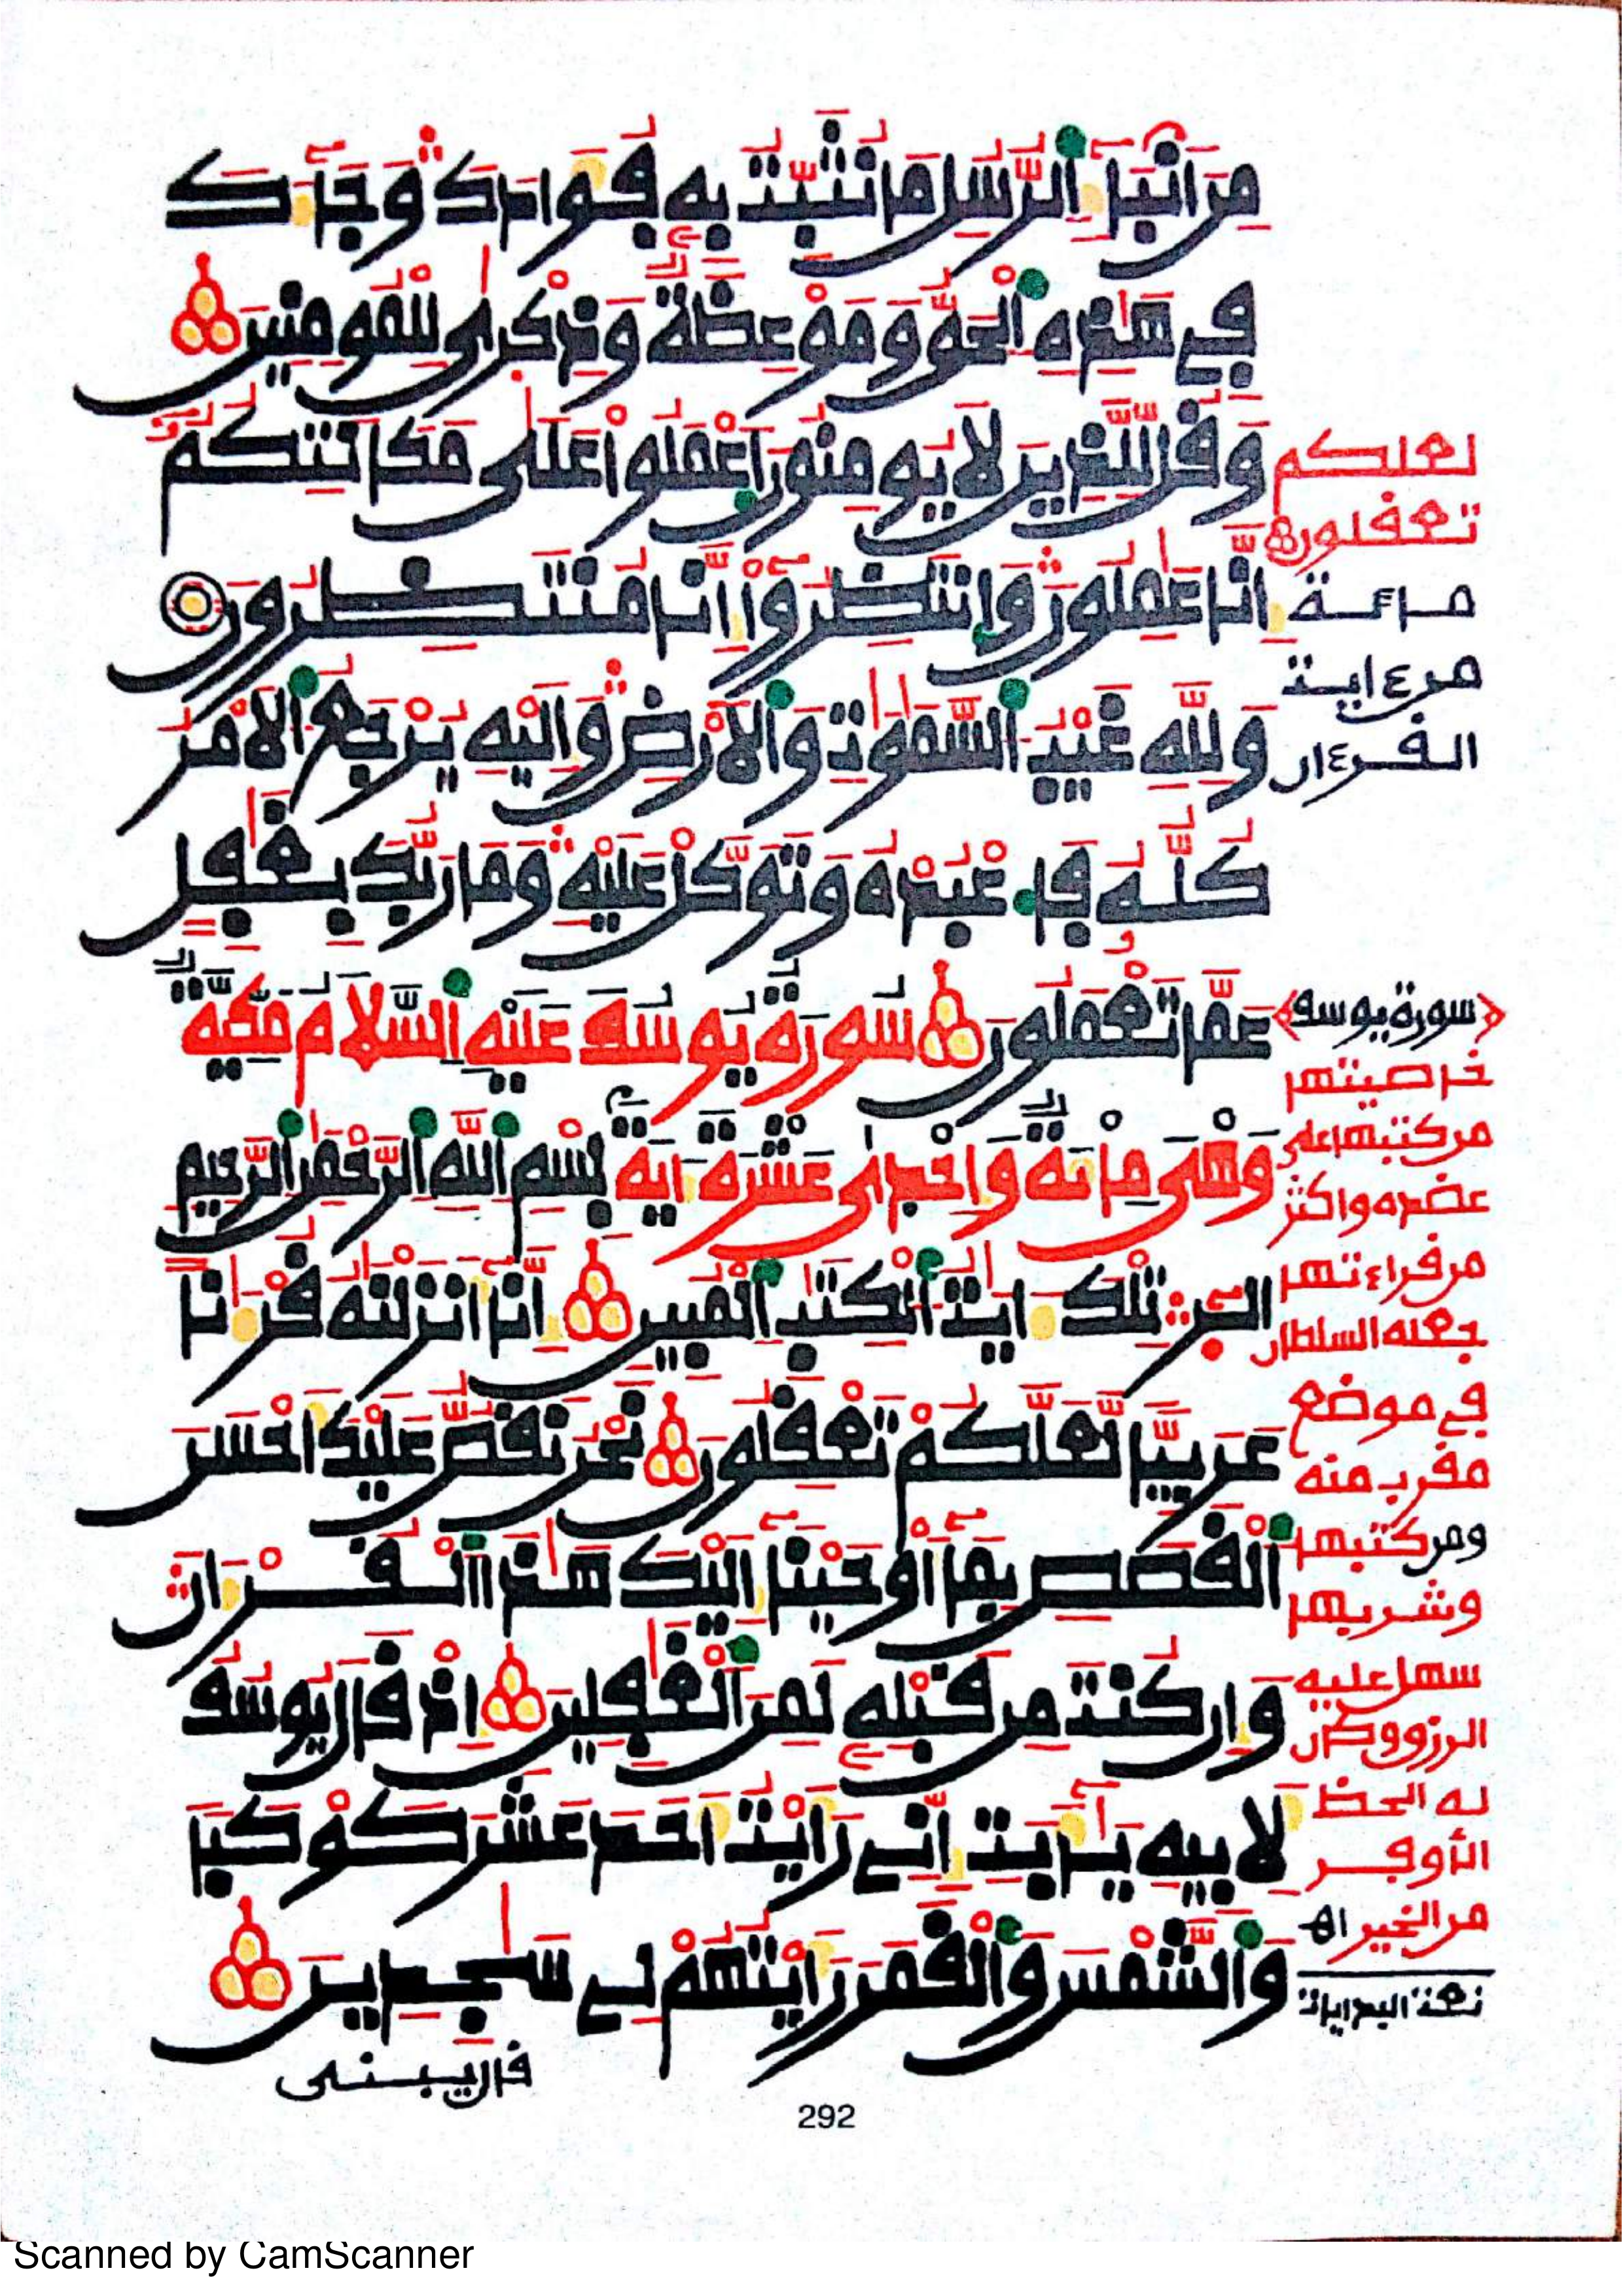 مِنَ اَنۢبَآءِ اِ۬لرُّسُلِ مَا نُثَبِّتُ بِهِۦ فُؤَادَكَۖ وَجَآءَكَ
فِے هَٰذِهِ اِ۬لْحَقُّ وَمَوْعِظَةٞ وَذِكْر۪يٰ لِلْمُومِنِينَ
وَقُل لِّلذِينَ لَا يُومِنُونَ اَ۪عْمَلُواْ عَلَيٰ مَكَانَتِكُمُۥٓ
إِنَّا عَٰمِلُونَۖ وَانتَظِرُوٓاْ إِنَّا مُنتَظِرُونَ
وَلِلهِ غَيْبُ اُ۬لسَّمَٰوَٰتِ وَالَارْضِۖ وَإِلَيْهِ يَرْجِعُ اُ۬لَامْرُ
كُلُّهُۥ فَاعْبُدْهُ وَتَوَكَّلْ عَلَيْهِۖ وَمَا رَبُّكَ بِغَٰفِلٍ
عَمَّا تَعْمَلُونَ سُورَةُ يُوسُفَ عَلَيْهِ اِ۬لسَّلَامُ مَكِّيَّةٌ
وَهْىَ مِائَةٌ وَإِحْدَىٰ عَشْرَةَ ءَايَةً بِسْمِ اِ۬للَّهِ اِ۬لرَّحْمَٰنِ اِ۬لرَّحِيمِ
أَلَٓر۪ۖ تِلْكَ ءَايَٰتُ اُ۬لْكِتَٰبِ اِ۬لْمُبِينِ إِنَّآ أَنزَلْنَٰهُ قُرْءَٰناً
عَرَبِيّاٗ لَّعَلَّكُمْ تَعْقِلُونَ نَحْنُ نَقُصُّ عَلَيْكَ أَحْسَنَ
اَ۬لْقَصَصِ بِمَآ أَوْحَيْنَآ إِلَيْكَ هَٰذَا اَ۬لْقُرْءَانَۖ
وَإِن كُنتَ مِن قَبْلِهِۦ لَمِنَ اَ۬لْغَٰفِلِينَ إِذْ قَالَ يُوسُفُ
لِأَبِيهِ يَٰٓأَبَتِ إِنِّے رَأَيْتُ أَحَدَ عَشَرَ كَوْكَباٗ
وَالشَّمْسَ وَالْقَمَرَ رَأَيْتُهُمْ لِے سَٰجِدِينَ
قال يبنى
لعلكم
تعقلون
مائة
من ءاية
القرءان
سورة يوسف
خاصيتها
من كتبها على
عضده واكثر
من قراءتها
جعله السلطان
في موضع
مقرب منه
ومن كتبها
وشربها
سهل عليه
الرزق وكان
له الحظ
الأوفر
من الخير اهـ
292
Scanned by CamScanner